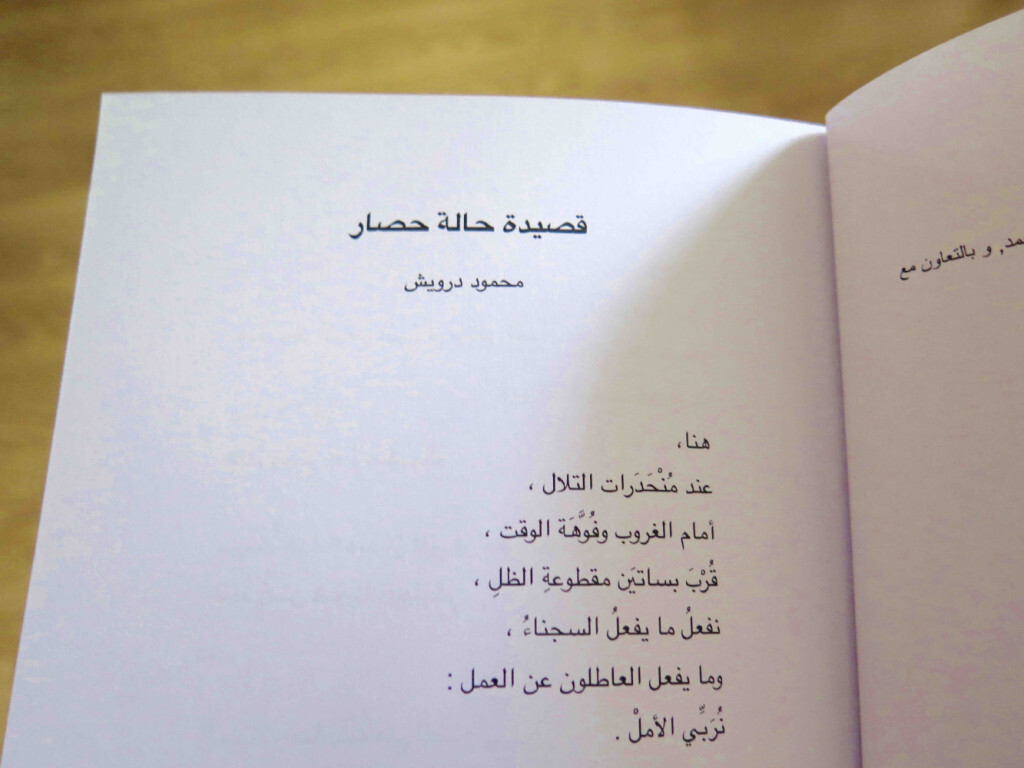 قصيدة حالة حصار
محمود درويش
هنا،
عند مُنْحَدَرات التلال ،
أمام الغروب وفُوَّهَة الوقت ،
قُرْبَ بساتيَن مقطوعةِ الظلِ ،
نفعلُ ما يفعلُ السجناءُ ،
وما يفعل العاطلون عن العمل :
نُرَبِّي الأملْ .
و بالتعاون مع